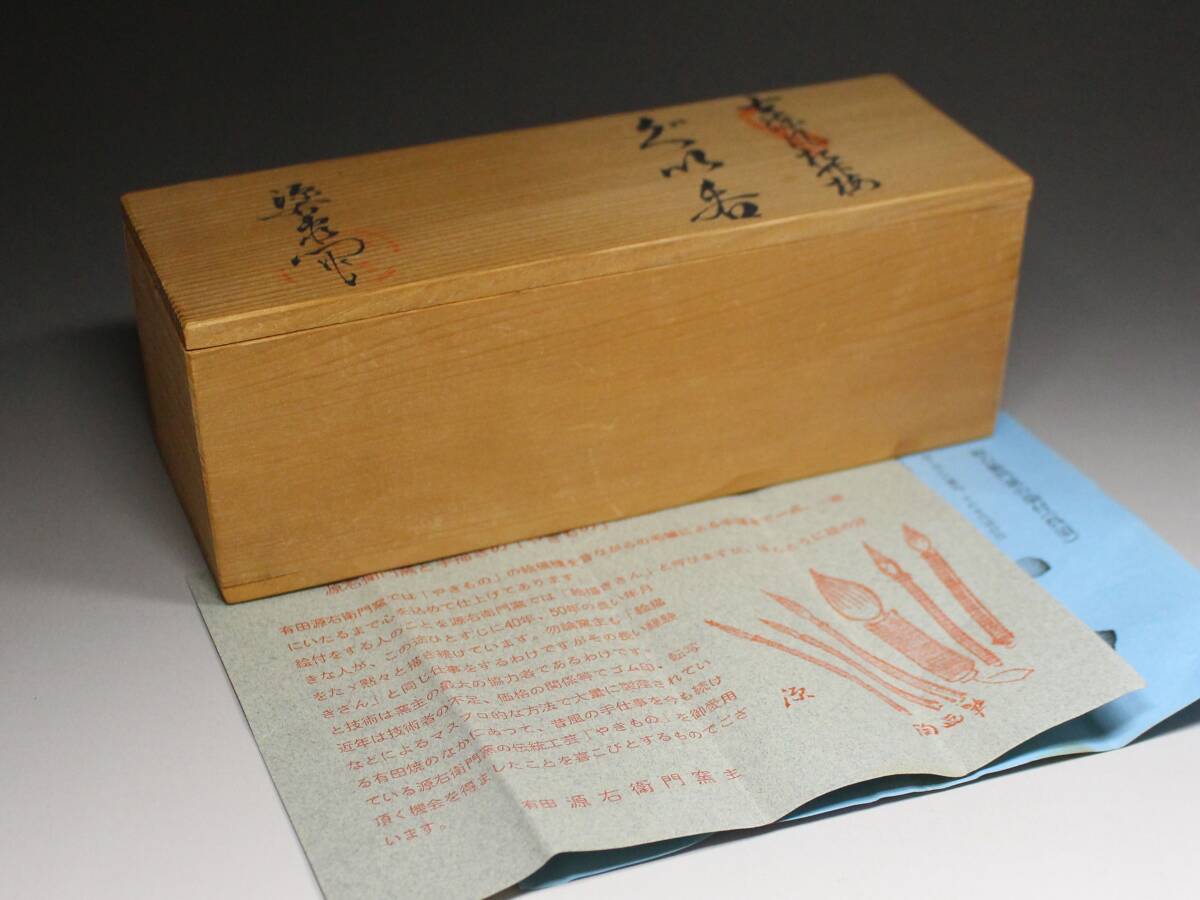 ぐい呑
源右衛門
源右衛門窯と手描きの「やきもの」
有田源右衛門窯では「やきもの」の絵模様を昔ながらの手描による
にいたるまで心を込めて仕上げてあります。
絵付をする人のことを源右衛門窯では「絵描きさん」と呼びますが、
きな人が、この途ひとすじに40年、50年の長い年月
をたゞ黙々と描き続けています。勿論窯主も「絵描
きさん」と同じ仕事をするわけですがその長い経験
と技術は窯主の最大の協力者であるわけです。
近年は技術者の不足、価格の関係等でゴム印・転写
などによるマスプロ的な方法で大量に製産されてい
る有田焼のなかにあって、昔風の手仕事を今も続け
ている源右衛門窯の伝統工芸「やきもの」を御愛用
頂く機会を得ましたことを喜こびとするものでござ
います。
有田 源右衛門窯主
源